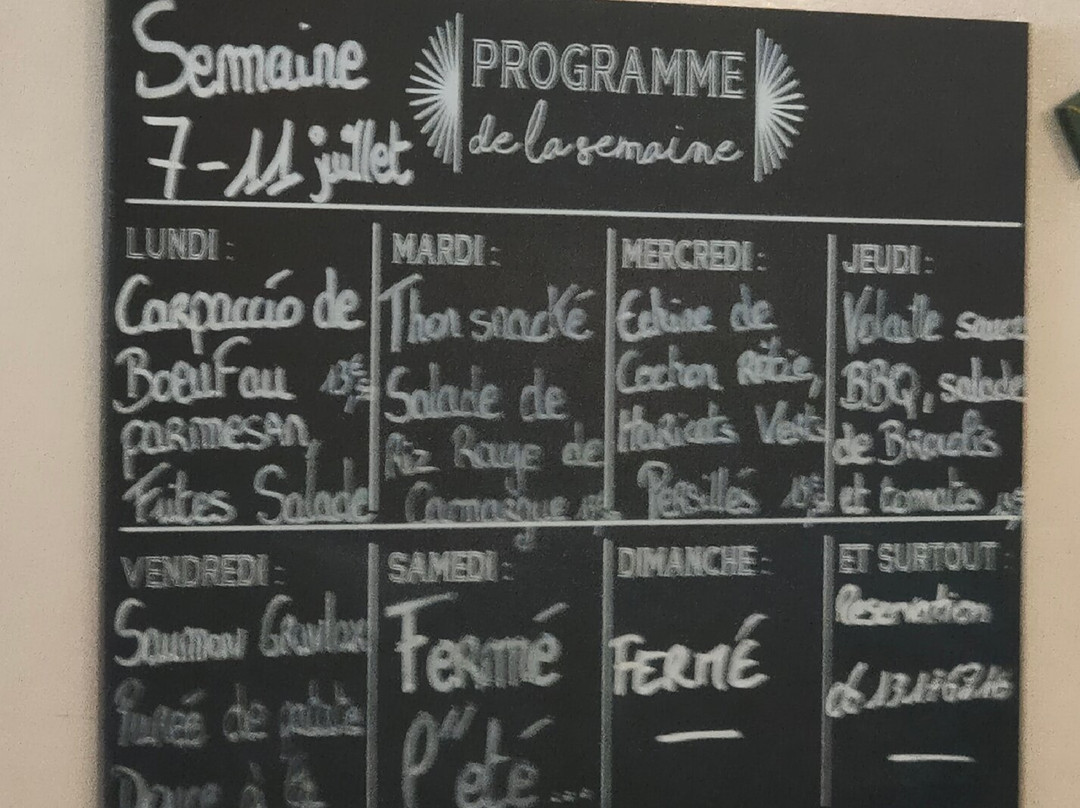 Semaine
7-11 juillet
PROGRAMME
de la semaine
LUNDI :
Carpaccio de
Boeuf au
parmesan,
Frites Salade
MARDI :
Thon snacké
Salade de
Riz Rouge de
Camargue
MERCREDI :
Echine de
Cochon Rôtie,
Haricots Verts
Persillés
JEUDI :
Volaille sauce
BBQ, salade
de
et tomates
VENDREDI :
Saumon Gravlax
Purée de
Douce à
SAMEDI :
Fermé
l'été...
DIMANCHE :
FERMÉ
ET SURTOUT :
Reservation